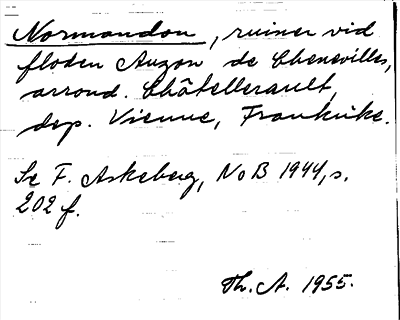 Normandon, ruiner vid
floden Auzon de Chenevilles,
arrond. Châtellerault,
dep. Vienne, Frankrike.
Se F. Askeberg, NoB 1944, s.
202 f.
Th. A. 1955.